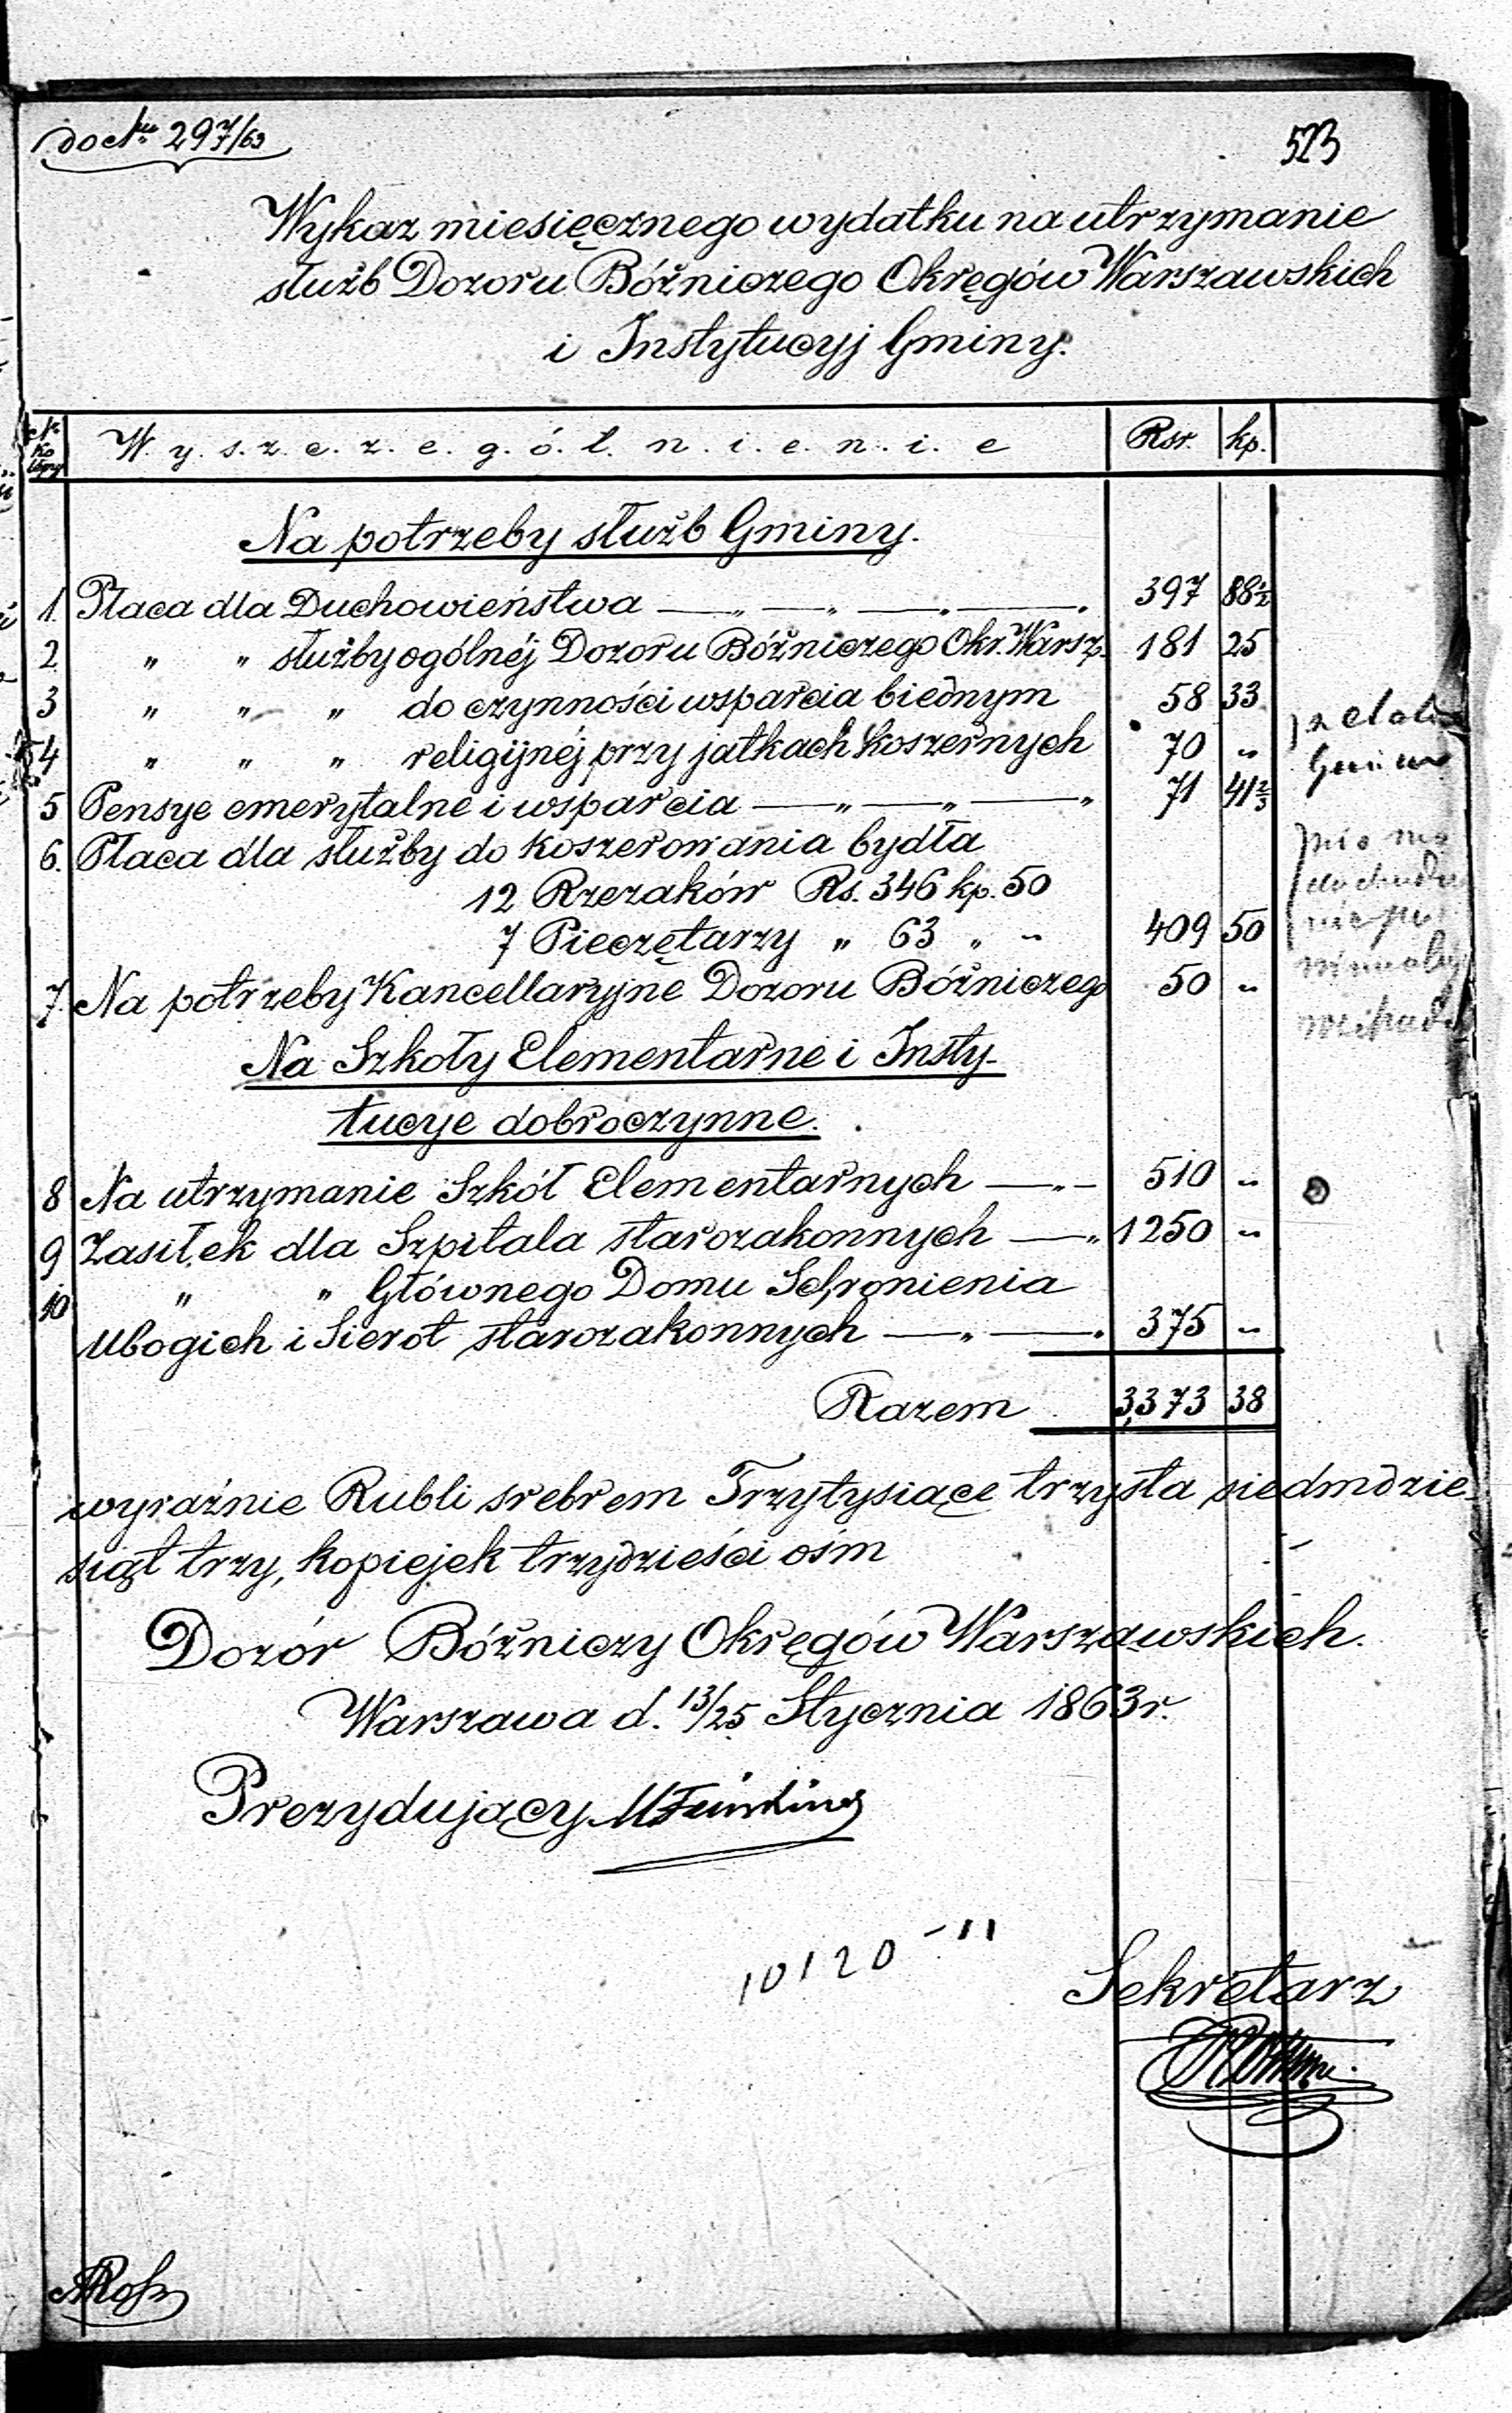 do Nru 297/63
523
Wykaz miesięcznego wydatku na utrzymanie
służb Dozoru Bóżniczego Okręgów Warszawskich
i Instytucyj Gminy.
W.y.s.z.c.z.e.g.ó.ł.n.i.e.n.i.e Rsr. kp.
Na potrzeby służb Gminy.
1. Płaca dla Duchowieństwa — „ — „ — „ — „ 397 88½
2 „ „ służby ogólnéj Dozoru Bóżniczego Okr. Warsz. 181 25
3 „ „ „ do czynności wsparcia biednym 58 33
4 „ „ „ religijnéj przy jatkach koszernych 70 „
5 Pensye emerytalne i wsparcia — „ — „ — „ 71 41⅔
6. Płaca dla służby do koszerowania bydła
12 Rzezaków Rs. 346 kp. 50
7 Pieczętarzy „ 63 „ „ 409 50
7. Na potrzeby Kancellaryjne Dozoru Bóżniczego 50 „
Na Szkoły Elementarne i Insty-
tucye dobroczynne.
8 Na utrzymanie Szkół Elementarnych — „ — 510 „
9 Zasiłek dla Szpitala starozakonnych — „ 1250 „
10 „ „ Głównego Domu Schronienia
Ubogich i Sierot starozakonnych — „ — „ 375 „
Razem 3,373 38
wyraźnie Rubli srebrem Trzytysiące trzysta siedmdzie-
siąt trzy, kopiejek trzydzieści ośm
Dozór Bóżniczy Okręgów Warszawskich.
Warszawa d. 13/25 Stycznia 1863 r.
Prezydujący
10120 - 11
Sekretarz